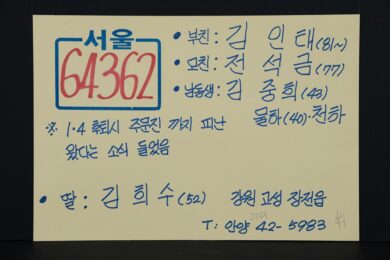 서울
64362
• 부친: 김 인 태(81~)
• 모친: 전 석 금(77)
• 남동생: 김 중 희(43)
물하(40)·천하
※ 1·4 후퇴시 주문진 까지 피난
왔다는 소식 들었음
• 딸: 김 희 수(52) 강원 고성 장전읍
T: 안양 42-5983